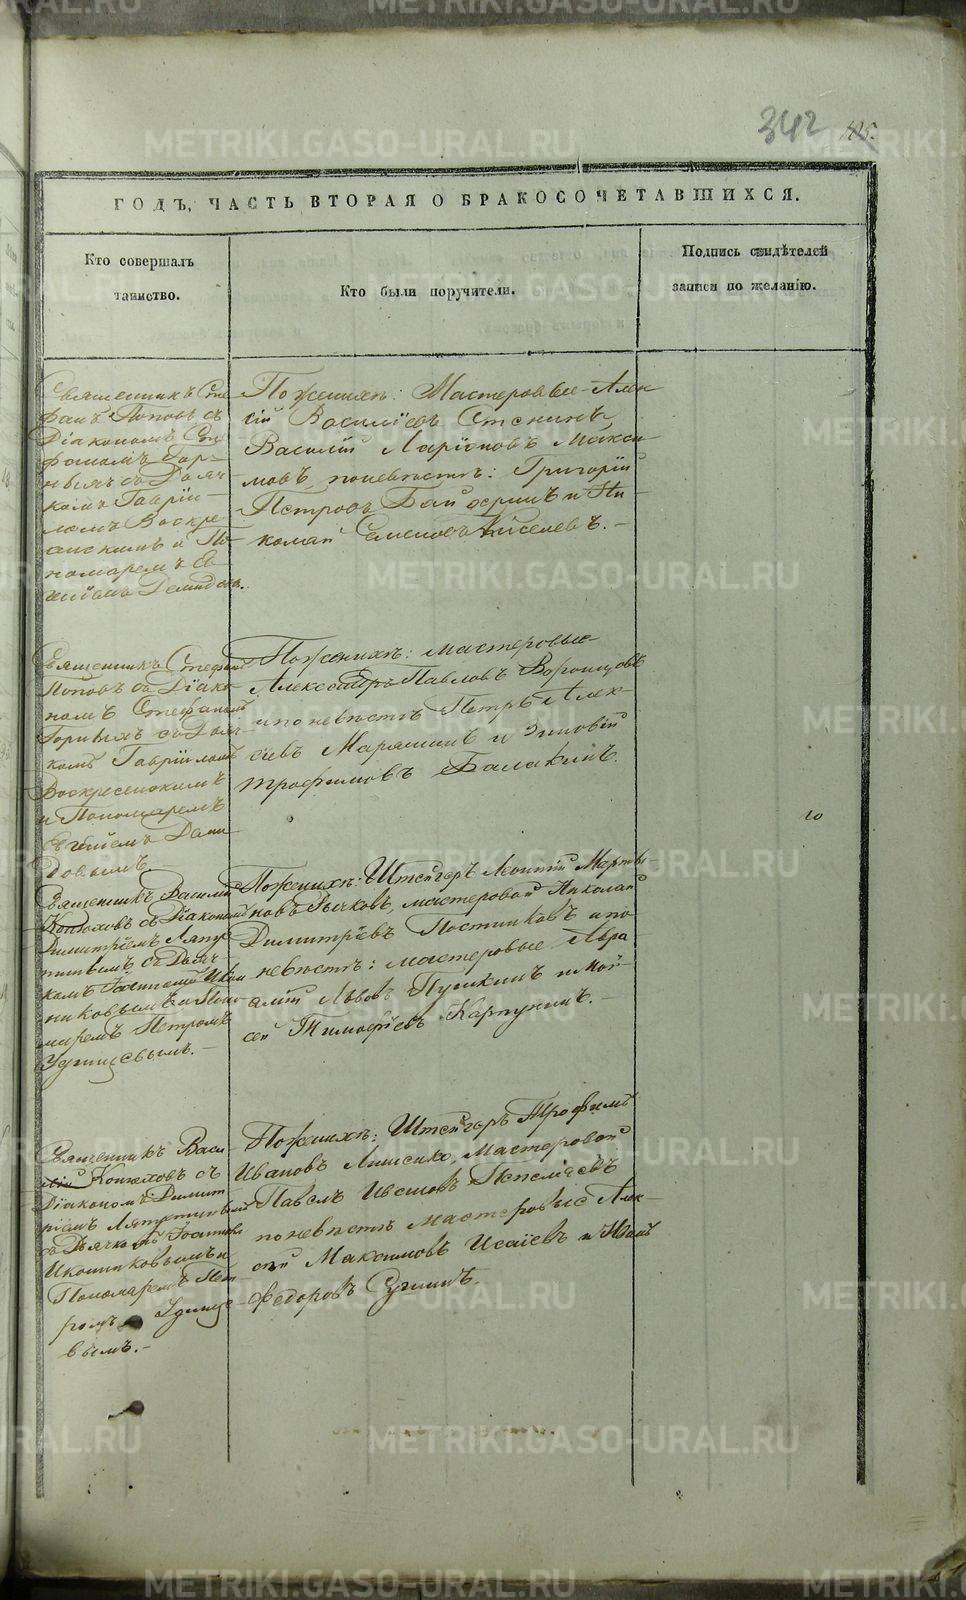 342 415.
ГОДЪ, ЧАСТЬ ВТОРАЯ О БРАКОСОЧЕТАВШИХСЯ.
Кто совершалъ
таинство.
Кто были поручители.
Подпись свидѣтелей
записи по желанію.
Священникъ Сте
фанъ Поповъ съ
Діакономъ Сте
фаномъ Гор-
нымъ съ Дьяч
комъ Гавріи-
ломъ Воскре-
сенскимъ и По-
номаремъ Ев
Демидов.
Поженихѣ: Мастеровые Алек
сій Василіевъ
Василій Ларіоновъ Макси-
мовъ, поневѣстѣ: Григорій
Петровъ и Ни-
колай Семеновъ Киселевъ. -
Священникъ Стефанъ
Поповъ съ Діако-
номъ Стефаномъ
Горнымъ съ Дьяч
комъ Гавріиломъ
Воскресенскимъ
и Пономаремъ
Поженихѣ: мастеровые
Александръ Павловъ Воронцовъ
и поневѣстѣ Петръ Алек-
сіевъ Маряшинъ и Зиновій
Трофимовъ Балакинъ.
10
Священникъ Василій
Конюховъ съ Діакономъ
Димитріемъ Ляпус
тинымъ съ Дьяч-
комъ Икон
никовымъ и Поно
маремъ Петромъ
Удинцевымъ. -
Поженихѣ: Штейгеръ Леонтій Марты
новъ Рычковъ, мастеровой Николай
Димитріевъ Постниковъ и по
невѣстѣ: мастеровые Авра
амій Львовъ Пушкинъ и Мой-
сей Тимофѣевъ Карпунинъ. -
Священникъ Васи
лій Конюховъ съ
Діакономъ Димит
ріемъ Ляпустинымъ
съ Дьячкомъ
Иконниковымъ и
Пономаремъ Пет-
ромъ Удинце-
вымъ. -
Поженихѣ: Штейгеръ Трофимъ
Ивановъ Мастеровой
Павелъ Пепеляевъ
поневѣстѣ мастеровые Алек-
сѣй Максимовъ Исаіевъ и Иванъ
Федоровъ